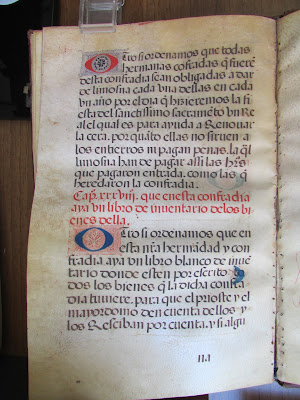 Otro si ordenamos que todas
hermanas cofradas q̃ fuerē
desta cofradia sean obligadas a dar
de limosna cada vna dellas en cada
vn año por el dia q̃ hizieremos la fi
esta del sanctissimo sacramēto vn Re
al el qual es para ayuda a Renouar
la cera. por quāto ellas no siruen a
los entierros ni pagan penas. la q̃l
limosna han de pagar assi las hr̃as
que pagaron entrada. como las q̃
heredaron la confradia.
Cap. xxxviii. que en esta confradia
aya vn libro de inuentario de los bi
enes della.
Otro si ordenamos que en
esta nr̃a hermãdad y con
fradia aya vn libro blanco de inuē
tario donde esten por escrito to
dos los bienes q̃ la dicha confra
dia tuuiere. para que el prioste y el
mayordomo den cuenta dellos y
los Resciban por cuenta. y si algu